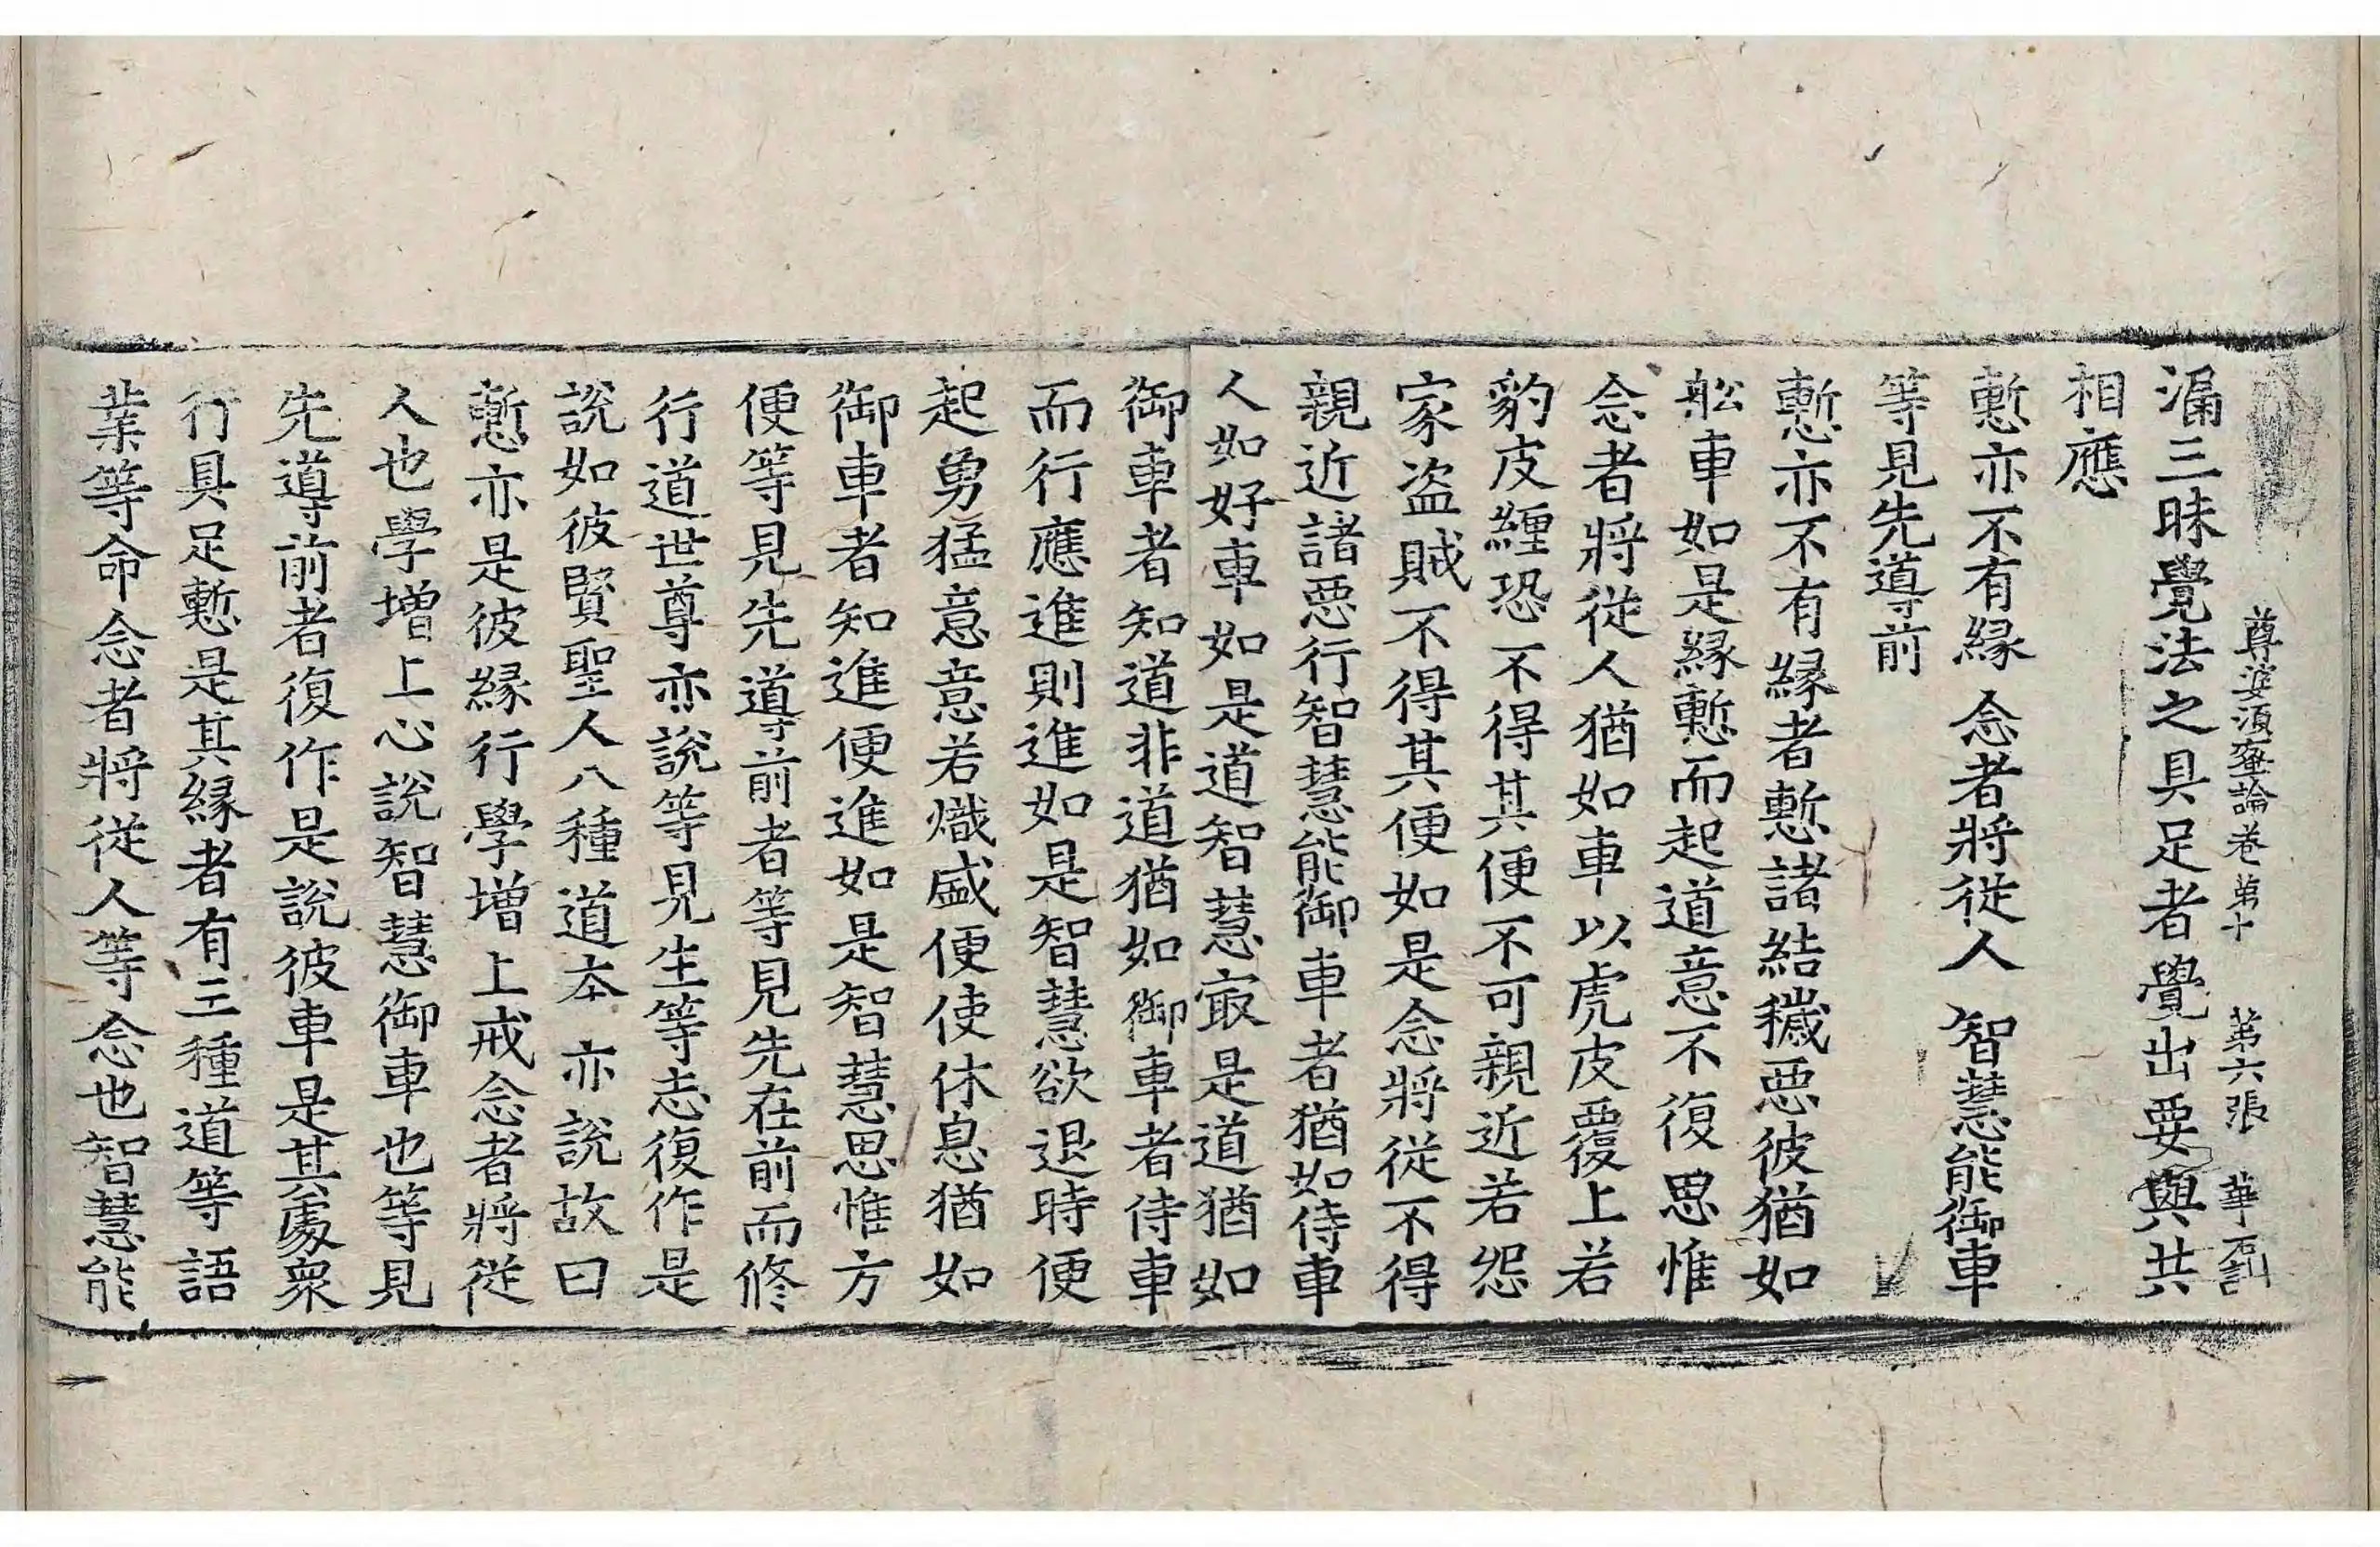 尊婆須蜜論卷第十　第六張　華
漏三昧覺法之具足者覺出要與共
相應
慙亦不有緣　念者將從人　智慧能御車
等見先導前
慙亦不有緣者慙諸結穢惡彼猶如
舩車如是緣慙而起道意不復思惟
念者將從人猶如車以虎皮覆上若
豹皮纒恐不得其便不可親近若怨
家盜賊不得其便如是念將從不得
親近諸惡行智慧能御車者猶如侍車
人如好車如是道智慧㝡是道猶如
御車者知道非道猶如御車者侍車
而行應進則進如是智慧欲退時便
起勇猛意意若熾盛便使休息猶如
御車者知進便進如是智慧思惟方
便等見先導前者等見先在前而修
行道世尊亦說等見生等志復作是
說如彼賢聖人八種道本亦說故曰
慙亦是彼緣行學增上戒念者將從
人也學增上心說智慧御車也等見
先導前者復作是說彼車是其處衆
行具足慙是其緣者有三種道等語
業等命念者將從人等念也智慧能